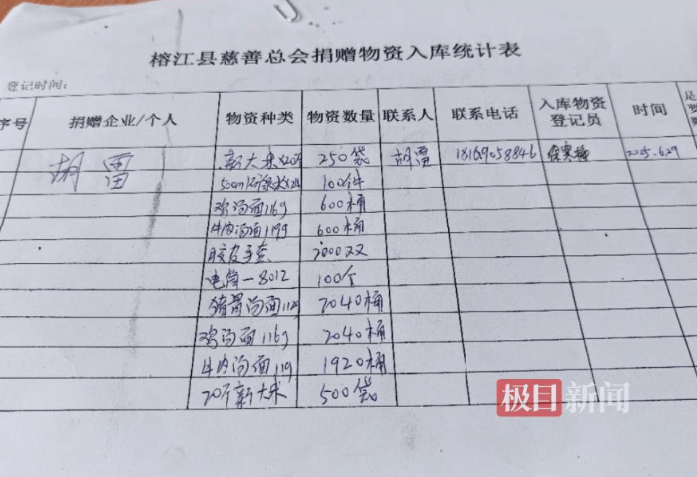 榕江县慈善总会捐赠物资入库统计表
登记时间：
序号 捐赠企业/个人 物资种类 物资数量 联系人 联系电话 入库物资登记员 时间 是
胡雷 新大米 250袋 胡雷 18169058846 2025.6.29
500ml 100件
鸡汤面116g 600桶
牛肉汤面119g 600桶
胶皮手套 2000双
电筒-8012 100个
猪骨汤面 2040桶
鸡汤面116g 2040桶
牛肉汤面119 1920桶
20斤新大米 500袋
极目新闻